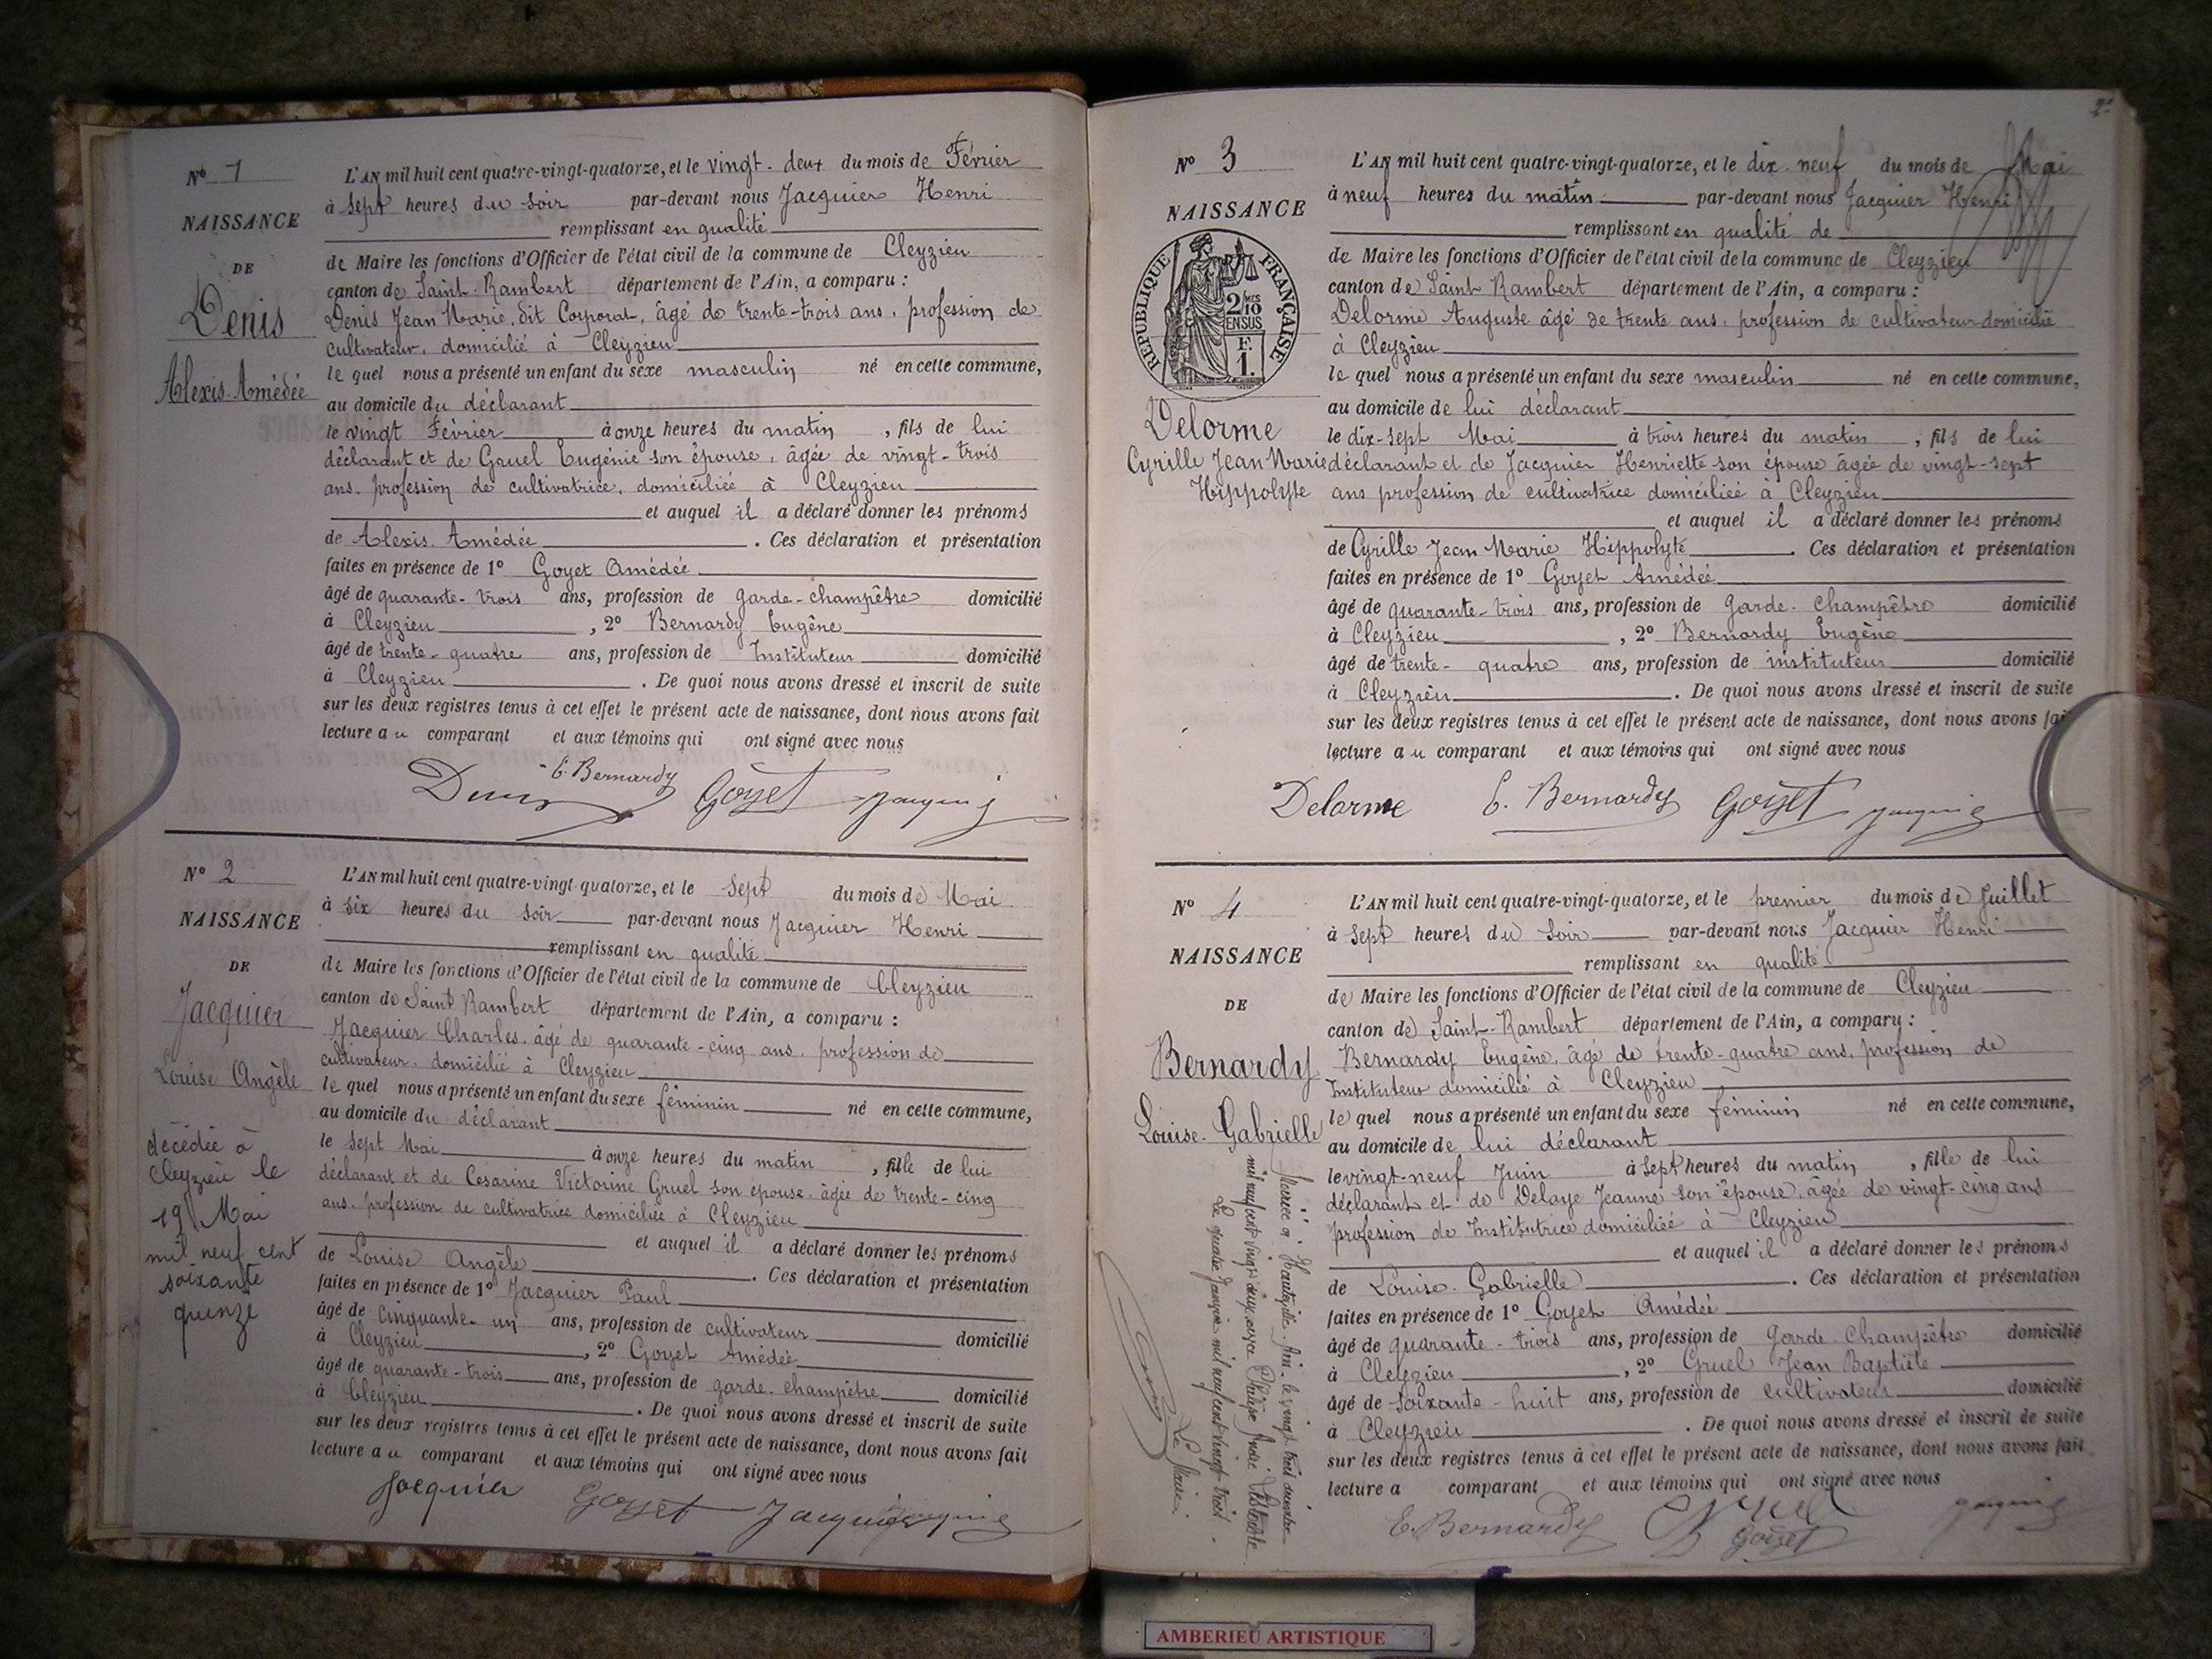 Nº 1
NAISSANCE
DE
Denis
Alexis-Amédée
L'AN mil huit cent quatre-vingt-quatorze, et le vingt-deux du mois de Février
à sept heures du soir par-devant nous Jacquier Henri
remplissant en qualité
de Maire les fonctions d'Officier de l'état civil de la commune de Cleyzieu
canton de Saint-Rambert département de l'Ain, a comparu :
Denis Jean Marie, dit Corporal, âgé de trente-trois ans, profession de
cultivateur, domicilié à Cleyzieu
le quel nous a présenté un enfant du sexe masculin né en cette commune,
au domicile du déclarant
le vingt Février à onze heures du matin, fils de lui
déclarant et de Gruel Eugénie son épouse, âgée de vingt-trois
ans, profession de cultivatrice, domiciliée à Cleyzieu
et auquel il a déclaré donner les prénoms
de Alexis Amédée. Ces déclaration et présentation
faites en présence de 1º Goyet Amédée
âgé de quarante-trois ans, profession de garde-champêtre domicilié
à Cleyzieu, 2º Bernardy Eugène
âgé de trente-quatre ans, profession de Instituteur domicilié
à Cleyzieu. De quoi nous avons dressé et inscrit de suite
sur les deux registres tenus à cet effet le présent acte de naissance, dont nous avons fait
lecture au comparant et aux témoins qui ont signé avec nous
Denis E. Bernardy Goyet Jacquier
Nº 2
NAISSANCE
DE
Jacquier
Louise Angèle
décédée à
Cleyzieu le
19 Mai
mil neuf cent
soixante
quinze
L'AN mil huit cent quatre-vingt-quatorze, et le sept du mois de Mai
à six heures du soir par-devant nous Jacquier Henri
remplissant en qualité
de Maire les fonctions d'Officier de l'état civil de la commune de Cleyzieu
canton de Saint Rambert département de l'Ain, a comparu :
Jacquier Charles, âgé de quarante-cinq ans, profession de
cultivateur, domicilié à Cleyzieu
le quel nous a présenté un enfant du sexe féminin né en cette commune,
au domicile du déclarant
le sept Mai à onze heures du matin, fille de lui
déclarant et de Césarine Victorine Gruel son épouse, âgée de trente-cinq
ans, profession de cultivatrice domiciliée à Cleyzieu
et auquel il a déclaré donner les prénoms
de Louise Angèle. Ces déclaration et présentation
faites en présence de 1º Jacquier Paul
âgé de cinquante-un ans, profession de cultivateur domicilié
à Cleyzieu, 2º Goyet Amédée
âgé de quarante-trois ans, profession de garde-champêtre domicilié
à Cleyzieu. De quoi nous avons dressé et inscrit de suite
sur les deux registres tenus à cet effet le présent acte de naissance, dont nous avons fait
lecture au comparant et aux témoins qui ont signé avec nous
Jacquier Goyet Jacquier Jacquier
2e
Nº 3
NAISSANCE
RÉPUBLIQUE FRANÇAISE
2/10 MES
EN SUS
F.
1.
Delorme
Cyrille Jean Marie
Hippolyte
L'AN mil huit cent quatre-vingt-quatorze, et le dix-neuf du mois de Mai
à neuf heures du matin par-devant nous Jacquier Henri
remplissant en qualité de
de Maire les fonctions d'Officier de l'état civil de la commune de Cleyzieu
canton de Saint Rambert département de l'Ain, a comparu :
Delorme Auguste âgé de trente ans, profession de cultivateur domicilié
à Cleyzieu
le quel nous a présenté un enfant du sexe masculin né en cette commune,
au domicile de lui déclarant
le dix-sept Mai à trois heures du matin, fils de lui
déclarant et de Jacquier Henriette son épouse âgée de vingt-sept
ans profession de cultivatrice domiciliée à Cleyzieu
et auquel il a déclaré donner les prénoms
de Cyrille Jean Marie Hippolyte. Ces déclaration et présentation
faites en présence de 1º Goyet Amédée
âgé de quarante-trois ans, profession de Garde-Champêtre domicilié
à Cleyzieu, 2º Bernardy Eugène
âgé de trente-quatre ans, profession de instituteur domicilié
à Cleyzieu. De quoi nous avons dressé et inscrit de suite
sur les deux registres tenus à cet effet le présent acte de naissance, dont nous avons fait
lecture au comparant et aux témoins qui ont signé avec nous
Delorme E. Bernardy Goyet Jacquier
Nº 4
NAISSANCE
DE
Bernardy
Louise-Gabrielle
Mariée à Hauteville Ain le vingt trois décembre
mil neuf cent vingt deux, avec Philipe André
Le quatre Janvier mil neuf cent vingt trois.
Le Maire.
L'AN mil huit cent quatre-vingt-quatorze, et le premier du mois de Juillet
à sept heures du soir par-devant nous Jacquier Henri
remplissant en qualité
de Maire les fonctions d'Officier de l'état civil de la commune de Cleyzieu
canton de Saint-Rambert département de l'Ain, a comparu :
Bernardy Eugène, âgé de trente-quatre ans, profession de
Instituteur domicilié à Cleyzieu
le quel nous a présenté un enfant du sexe féminin né en cette commune,
au domicile de lui déclarant
le vingt-neuf Juin à sept heures du matin, fille de lui
déclarant et de Delaye Jeanne son épouse, âgée de vingt-cinq ans
profession de Institutrice domiciliée à Cleyzieu
et auquel il a déclaré donner les prénoms
de Louise-Gabrielle. Ces déclaration et présentation
faites en présence de 1º Goyet Amédée
âgé de quarante-trois ans, profession de Garde-Champêtre domicilié
à Cleyzieu, 2º Gruel Jean Baptiste
âgé de soixante-huit ans, profession de cultivateur domicilié
à Cleyzieu. De quoi nous avons dressé et inscrit de suite
sur les deux registres tenus à cet effet le présent acte de naissance, dont nous avons fait
lecture a comparant et aux témoins qui ont signé avec nous
E. Bernardy Gruel Goyet Jacquier
AMBERIEU ARTISTIQUE